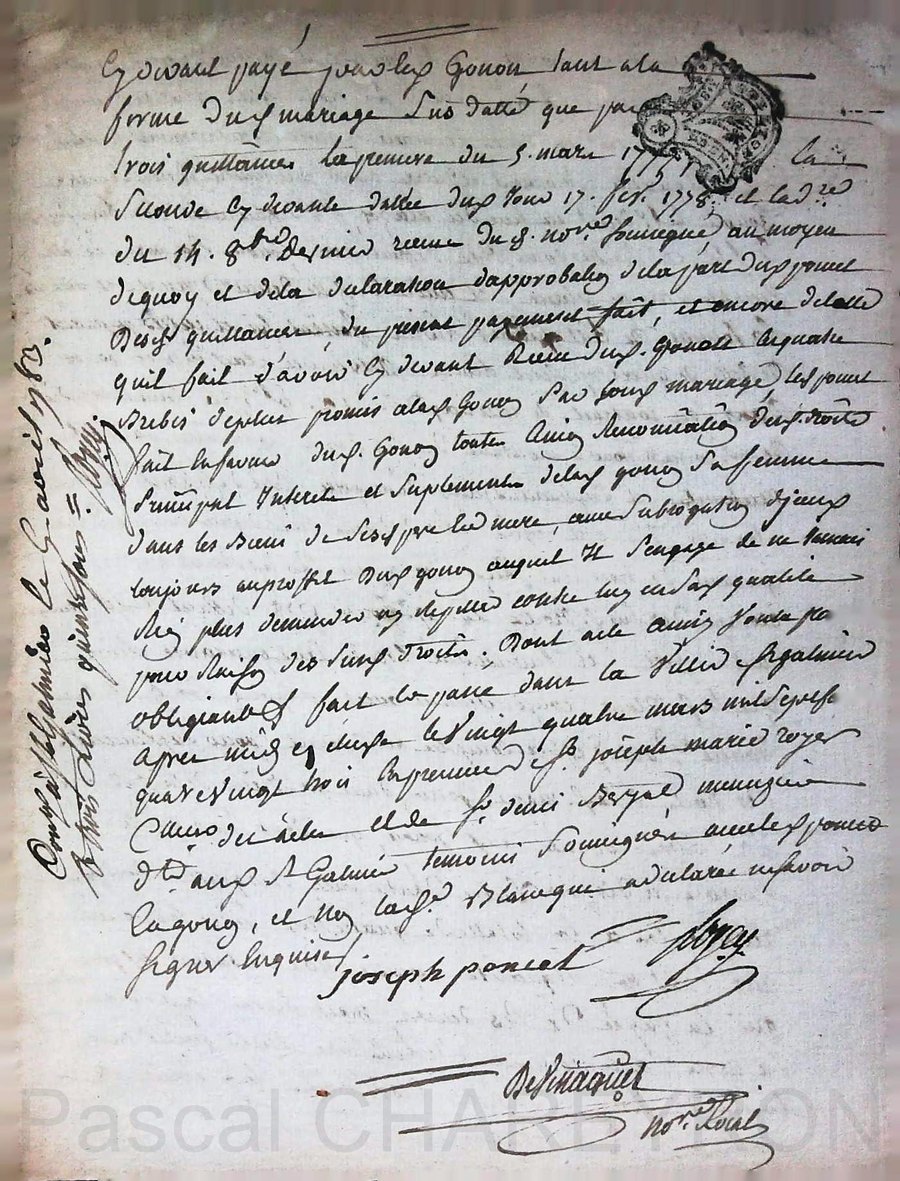 Cy devant payé par led Gonon tant a la
forme dud mariage sus datté que par
trois quittances la premiere du 5. mars 177 la
seconde cy devante dattée dud jour 17. fev. 1778, et la d.re
du 14. 8bre dernier receue du d. no.re soussigné, au moyen
de quoy et de la declaration d'approbation de la part dud poncet
desd quittances, du present payement fait, et encore de celle
qu'il fait d'avoir cy devant receu dud. Gonon les quatre
Brebis de plus promis a lad Gonon par sond mariage, led poncet
fait en faveur dud. Gonon toutes
principal interets et suplements de lad gonon sa femme
dans les Biens de sesd pere et mere, avec subrogation
toujours au proffit dud gonon auquel il s'engage de ne jamais
rien plus demander ny repeter contre luy en sad qualité
pour raison des susd droits. Dont acte
obligeant &c fait et passé dans la ville St galmier
apres midy en etude le vingt quatre mars mil sept cent
quatre vingt trois en presence de Sr. joseph marie royer
et de Sr. denis menuizier
dud St Galmier temoins soussignés avec led poncet
la gonon, et non lad. Blanc qui a declaré ne savoir
signer enquise /.
joseph poncet Royer
no.re Royal
Con.lé a St galmier le 5 avril 1783.
R trois livres quinze sous =
Pascal CHAREYRON